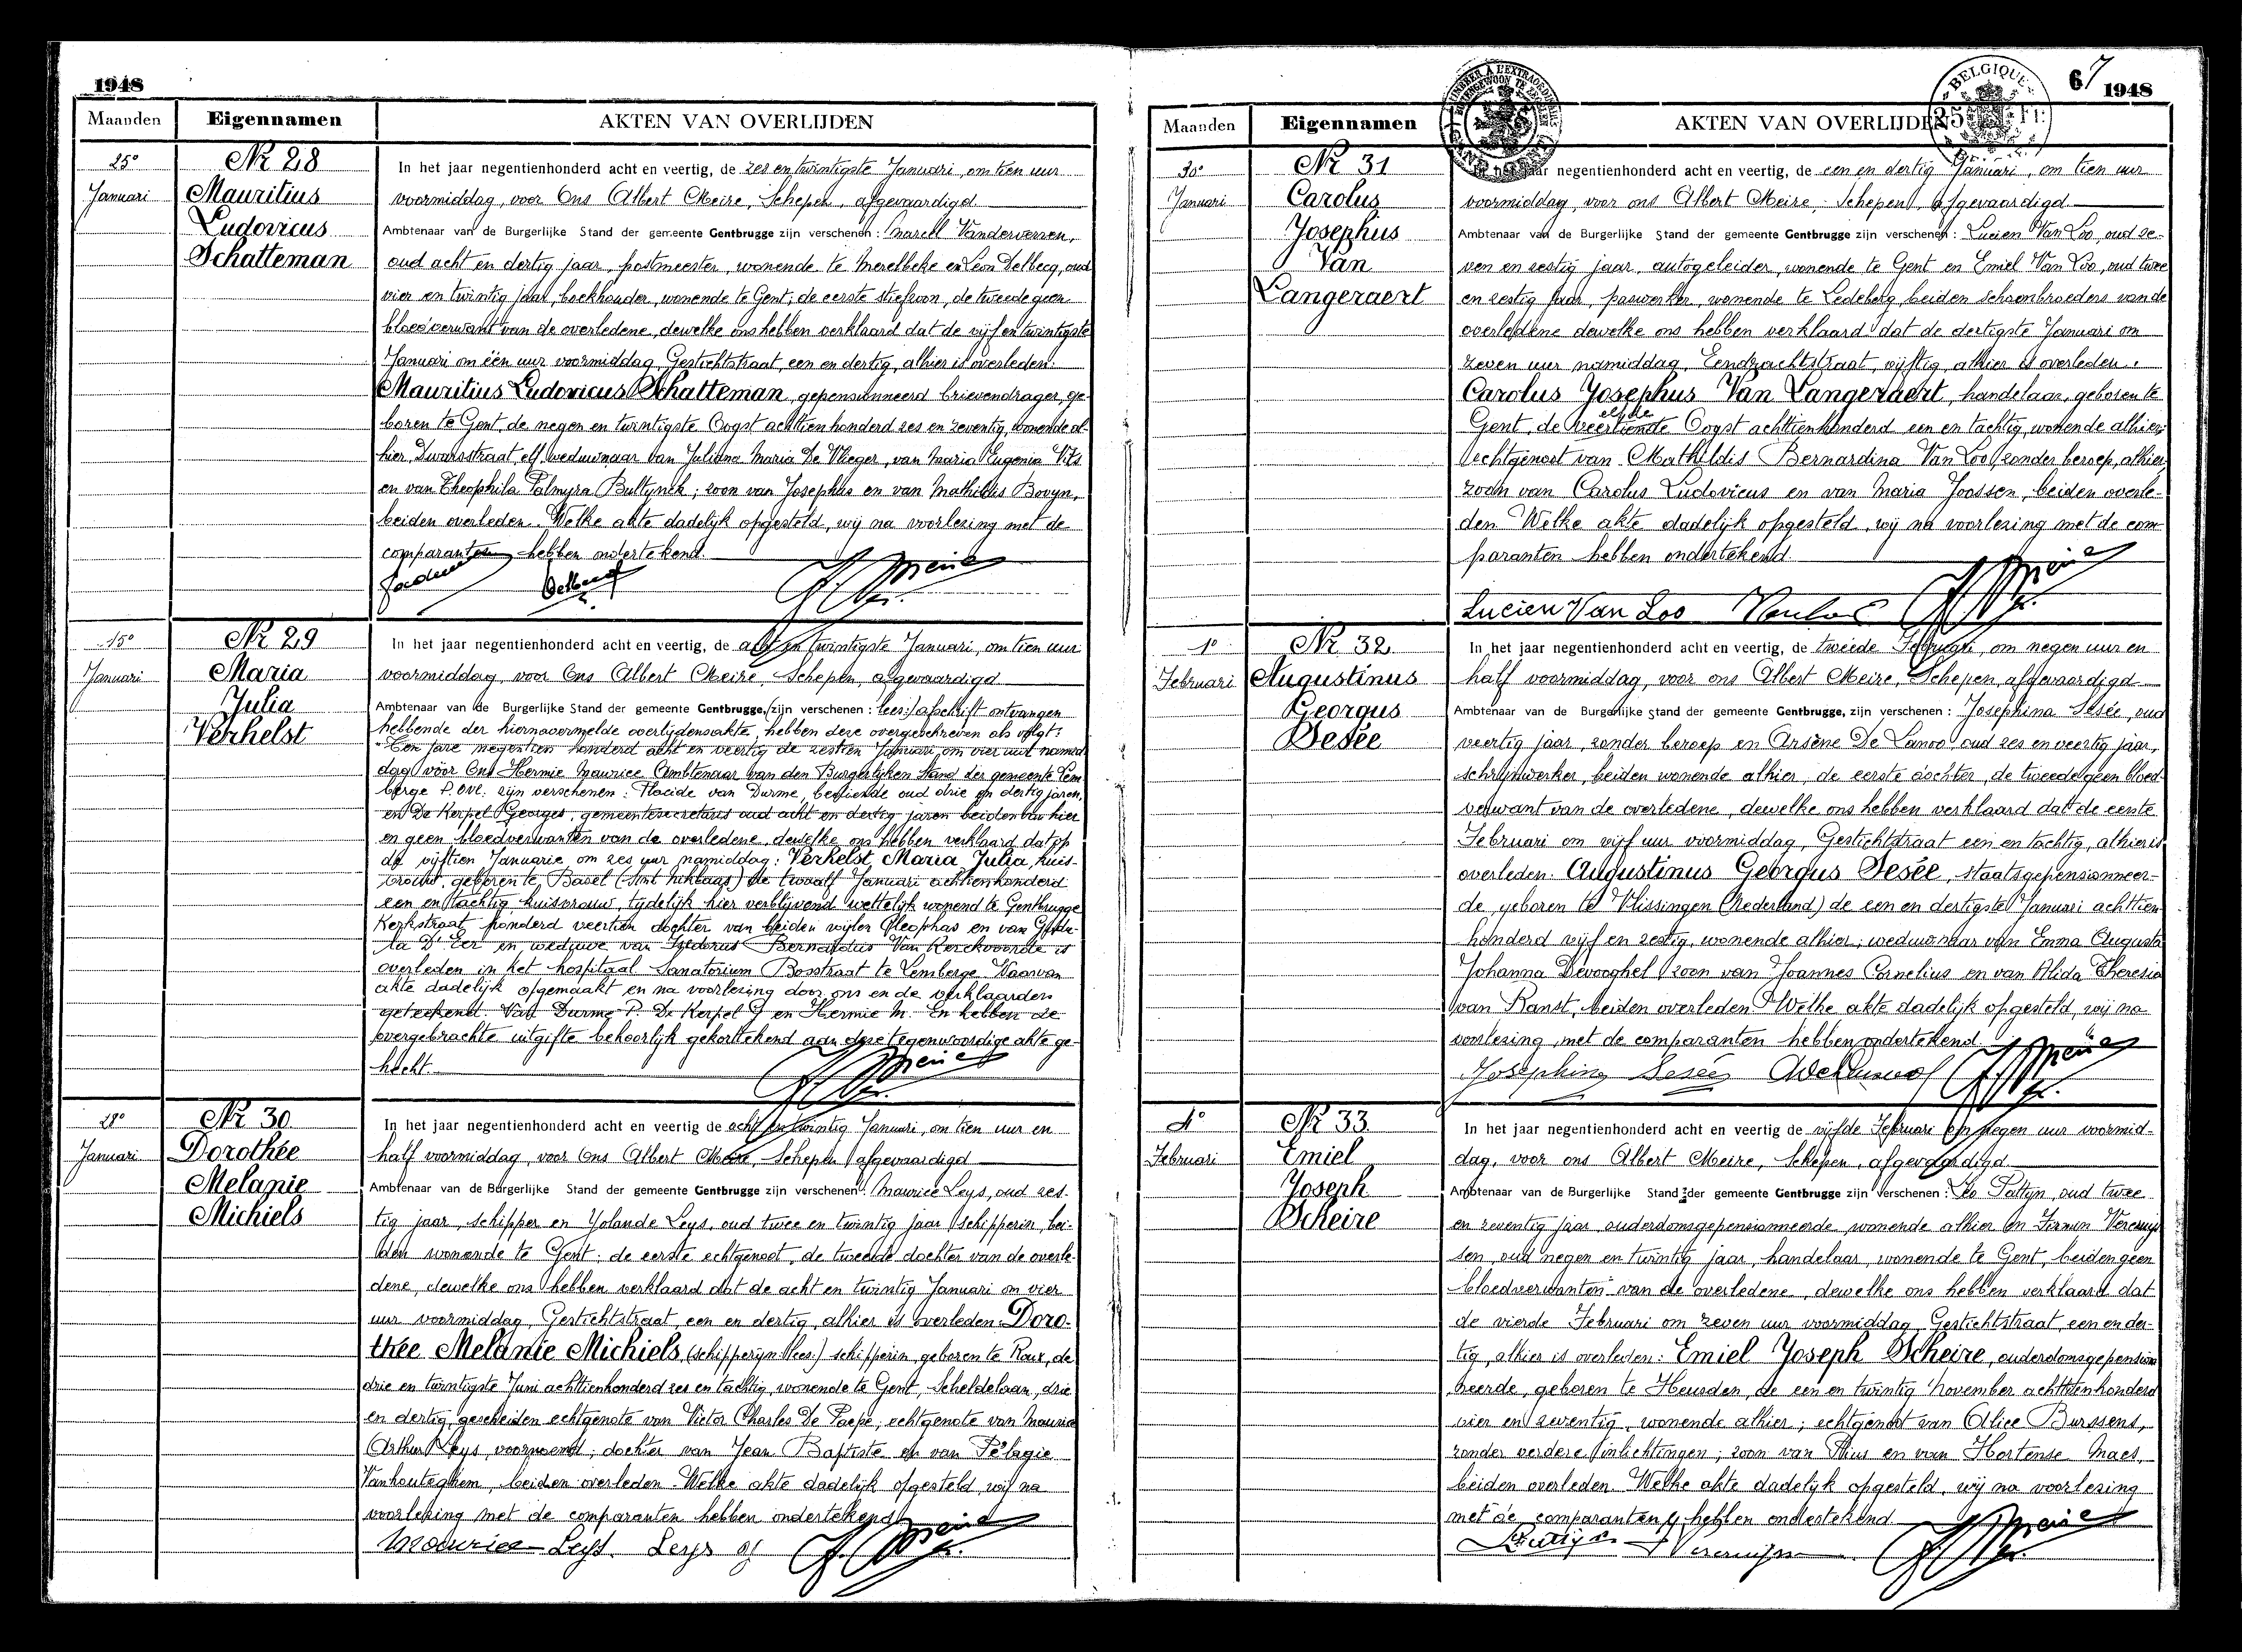 1948
Maanden Eigennamen AKTEN VAN OVERLIJDEN
25° Januari
Nr 28
Mauritius
Ludovicus
Schatteman
In het jaar negentienhonderd acht en veertig, de zes en twintigste Januari, om tien uur
voormiddag, voor Ons Albert Meire, Schepen, afgevaardigd
Ambtenaar van de Burgerlijke Stand der gemeente Gentbrugge zijn verschenen: Marcel
oud acht en dertig jaar, postmeester, wonende te Merelbeke en Leon Delbecq, oud
vier en twintig jaar, boekhouder, wonende te Gent; de eerste stiefzoon, de tweede geen
bloedverwant van de overledene, dewelke ons hebben verklaard dat de vijf en twintigste
Januari om één uur voormiddag, Gestichtstraat, een en dertig, alhier is overleden:
Mauritius Ludovicus Schatteman, gepensionneerd brievendrager, ge-
boren te Gent, de negen en twintigste Oogst achttienhonderd zes en zeventig, wonende al-
hier, Dwarsstraat, elf, weduwnaar van Juliana Maria De Vlieger, van Maria Eugenia Vits
en van Theophila Palmyra Bultynck; zoon van Josephus en van Mathildis Bovyn,
beiden overleden. Welke akte dadelijk opgesteld, wij na voorlezing met de
comparanten hebben ondertekend.
15° Januari
Nr 29
Maria
Julia
Verhelst
In het jaar negentienhonderd acht en veertig, de acht en twintigste Januari, om tien uur
voormiddag, voor Ons Albert Meire, Schepen, afgevaardigd
Ambtenaar van de Burgerlijke Stand der gemeente Gentbrugge, (zijn verschenen: lees:) afschrift ontvangen
hebbende der hiernavermelde overlijdensakte, hebben deze overgeschreven als volgt:
"Ten jare negentien honderd acht en veertig de zestien Januari, om vier uur namid-
dag vóór Ons Hermie Maurice Ambtenaar van den Burgerlijken Stand der gemeente Lem-
berge P. Ovl. zijn verschenen: Placide van Durme, bediende oud drie en dertig jaren,
en De Kerpel Georges, gemeentesecretaris oud acht en dertig jaren beiden van hier
en geen bloedverwanten van de overledene, dewelke ons hebben verklaard dat op
de vijftien Januarie om zes uur namiddag: Verhelst, Maria Julia, huis-
vrouw, geboren te Basel (Sint Niklaas) de twaalf Januari achttienhonderd
een en tachtig huisvrouw, tijdelijk hier verblijvend wettelijk wonend te Gentbrugge
Kerkstraat honderd veertien dochter van beiden wijlen Cleophas en van
en weduwe van Isedorus Bernardus Van Kerckvoorde is
overleden in het hospitaal Sanatorium Bosstraat te Lemberge. Waarvan
akte dadelijk opgemaakt en na voorlezing door ons en de verklaarders
geteekend. Van Durme P. De Kerpel G en Hermie M. En hebben de
overgebrachte uitgifte behoorlijk gekorttekend aan deze tegenwoordige akte ge-
hecht.
28° Januari
Nr 30
Dorothée
Melanie
Michiels
In het jaar negentienhonderd acht en veertig de acht en twintig Januari, om tien uur en
half voormiddag, voor Ons Albert Meire, Schepen, afgevaardigd
Ambtenaar van de Burgerlijke Stand der gemeente Gentbrugge zijn verschenen: Maurice Leys, oud zes-
tig jaar, schipper en Yolande Leys, oud twee en twintig jaar, schipperin, bei-
den wonende te Gent: de eerste echtgenoot, de tweede dochter van de overle-
dene, dewelke ons hebben verklaard dat de acht en twintig Januari om vier
uur voormiddag, Gestichtstraat, een en dertig, alhier is overleden: Doro-
thée Melanie Michiels, (schipperijn lees:) schipperin, geboren te Roux, de
drie en twintigste Juni achttienhonderd zes en tachtig, wonende te Gent, Scheldelaan, drie
en dertig, gescheiden echtgenote van Victor Charles De Paepe; echtgenote van Maurice
Arthur Leys, voornoemd; dochter van Jean Baptiste en van Pélagie
Vanhouteghem, beiden overleden. Welke akte dadelijk opgesteld, wij na
voorlezing met de comparanten hebben ondertekend
Maurice Leys. Leys y
67 1948
BELGIQUE
Maanden Eigennamen AKTEN VAN OVERLIJDEN
30° Januari
Nr 31
Carolus
Josephus
Van
Langeraert
In het jaar negentienhonderd acht en veertig, de een en dertig Januari, om tien uur
voormiddag, voor ons Albert Meire, Schepen, afgevaardigd
Ambtenaar van de Burgerlijke Stand der gemeente Gentbrugge zijn verschenen: Lucien Van Loo, oud ze-
ven en zestig jaar, autogeleider, wonende te Gent en Emiel Van Loo, oud twee
en zestig jaar, paswerker, wonende te Ledeberg, beiden schoonbroeders van de
overledene dewelke ons hebben verklaard dat de dertigste Januari om
zeven uur namiddag, Eendrachtstraat, vijftig, alhier is overleden:
Carolus Josephus Van Langeraert, handelaar, geboren te
elfde
Gent, de veertiende Oogst achttienhonderd een en tachtig, wonende alhier;
echtgenoot van Mathildis Bernardina Van Loo, zonder beroep, alhier,
zoon van Carolus Ludovicus en van Maria Joossen, beiden overle-
den. Welke akte dadelijk opgesteld, wij na voorlezing met de com-
paranten hebben ondertekend.
Lucien Van Loo Vanloo
1° Februari
Nr 32
Augustinus
Georgus
Desée
In het jaar negentienhonderd acht en veertig, de tweede Februari, om negen uur en
half voormiddag, voor ons Albert Meire, Schepen, afgevaardigd
Ambtenaar van de Burgerlijke Stand der gemeente Gentbrugge, zijn verschenen: Josephina Desée, oud
veertig jaar, zonder beroep en Arsène De Lanoo oud zes en veertig jaar,
schrijnwerker, beiden wonende alhier, de eerste dochter, de tweede geen bloed-
verwant van de overledene, dewelke ons hebben verklaard dat de eerste
Februari om vijf uur voormiddag, Gestichtstraat een en tachtig, alhier is
overleden. Augustinus Georgus Desée, staatsgepensionneer-
de, geboren te Vlissingen (Nederland) de een en dertigste Januari achttien-
honderd vijf en zestig, wonende alhier; weduwnaar van Emma Augusta
Johanna Devooghel, zoon van Joannes Cornelius en van Alida Theresia
van Ranst, beiden overleden. Welke akte dadelijk opgesteld, wij na
voorlezing met de comparanten hebben ondertekend.
Josephina Desée
4° Februari
Nr 33
Emiel
Joseph
Scheire
In het jaar negentienhonderd acht en veertig de vijfde Februari om negen uur voormid-
dag, voor ons Albert Meire, Schepen, afgevaardigd
Ambtenaar van de Burgerlijke Stand der gemeente Gentbrugge zijn verschenen: Leo Paltyn, oud twee
en zeventig jaar, ouderdomsgepensionneerde, wonende alhier en Firmin Vercruys-
sen, oud negen en twintig jaar, handelaar, wonende te Gent, beiden geen
bloedverwanten van de overledene, dewelke ons hebben verklaard dat
de vierde Februari om zeven uur voormiddag, Gestichtstraat, een en der-
tig, alhier is overleden: Emiel Joseph Scheire, ouderdomsgepension-
neerde, geboren te Heusden, de een en twintig November achttienhonderd
vier en zeventig, wonende alhier; echtgenoot van Alice Burssens,
zonder verdere inlichtingen; zoon van Pius en van Hortense Maes,
beiden overleden. Welke akte dadelijk opgesteld, wij na voorlezing
met de comparanten hebben ondertekend.